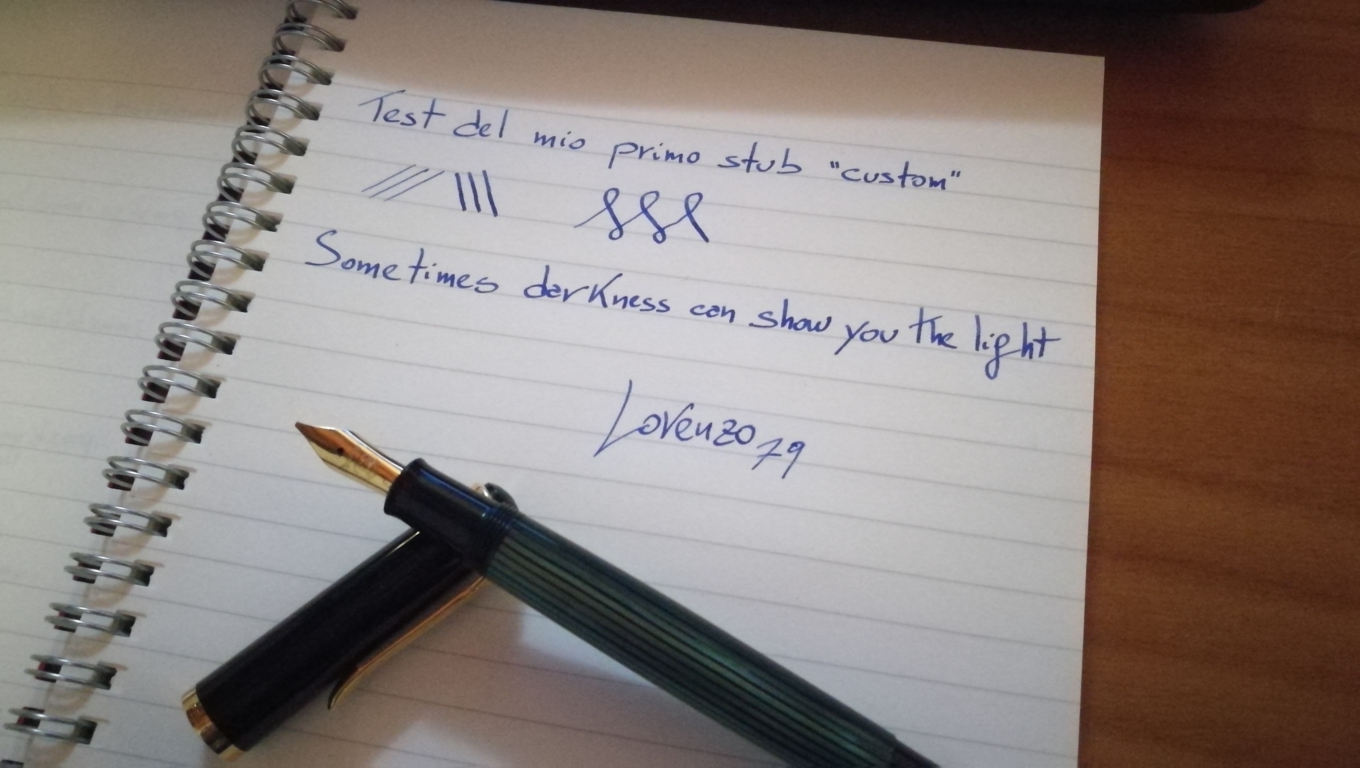 Test del mio primo stub "custom"
Sometimes darkness can show you the light
Lorenzo79